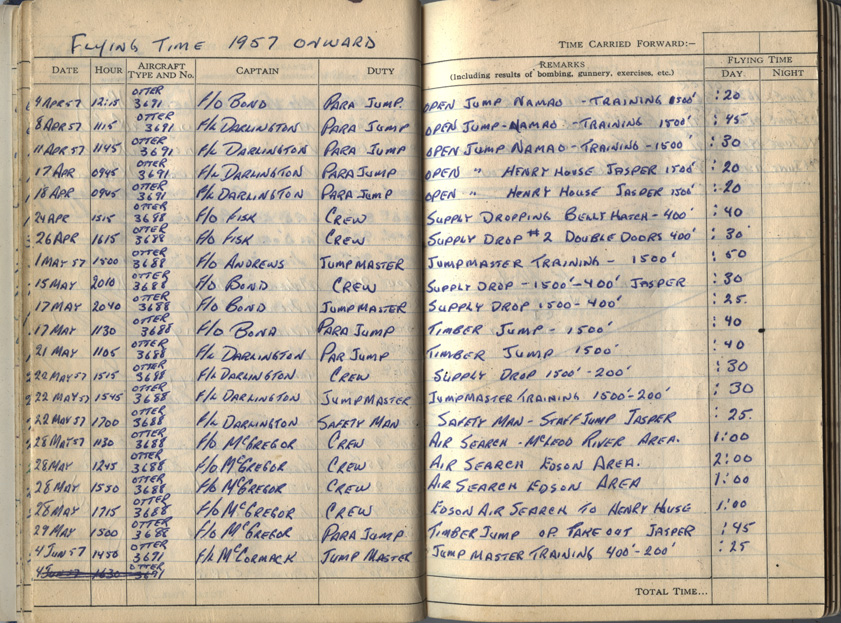 FLYING TIME 1957 ONWARD
TIME CARRIED FORWARD:—
DATE HOUR AIRCRAFT TYPE AND No. CAPTAIN DUTY REMARKS (Including results of bombing, gunnery, exercises, etc.) FLYING TIME DAY NIGHT
4 APR 57 12:15 OTTER 3691 F/O BOND PARA JUMP. OPEN JUMP NAMAO - TRAINING 1500' :20
8 APR 57 1115 OTTER 3691 F/L DARLINGTON PARA JUMP OPEN JUMP - NAMAO - TRAINING 1500' :45
11 APR 57 1145 OTTER 3691 F/L DARLINGTON PARA JUMP OPEN JUMP NAMAO - TRAINING - 1500' :30
17 APR 0945 OTTER 3691 F/L DARLINGTON PARA JUMP OPEN " HENRY HOUSE JASPER 1500' :20
18 APR 0945 OTTER 3691 F/L DARLINGTON PARA JUMP OPEN " HENRY HOUSE JASPER 1500' :20
24 APR 1515 OTTER 3688 F/O FISK CREW SUPPLY DROPPING BELLY HATCH - 400' :40
26 APR 1615 OTTER 3688 F/O FISK CREW SUPPLY DROP #2 DOUBLE DOORS 400' :30
1 MAY 57 1500 OTTER 3688 F/O ANDREWS JUMPMASTER JUMPMASTER TRAINING - 1500' :50
15 MAY 2010 OTTER 3688 F/O BOND CREW SUPPLY DROP - 1500' - 400' JASPER :30
17 MAY 2040 OTTER 3688 F/O BOND JUMPMASTER SUPPLY DROP 1500 - 400' :25.
17 MAY 1130 OTTER 3688 F/O BOND PARA JUMP TIMBER JUMP - 1500' :40
21 MAY 1105 OTTER 3688 F/L DARLINGTON PAR JUMP TIMBER JUMP 1500' :40
22 MAY 57 1515 OTTER 3688 F/L DARLINGTON CREW SUPPLY DROP 1500' - 200' :30
22 MAY 57 1545 OTTER 3688 F/L DARLINGTON JUMPMASTER JUMPMASTER TRAINING 1500' - 200' :30
22 MAY 57 1700 OTTER 3688 F/L DARLINGTON SAFETY MAN SAFETY MAN - STAFF JUMP JASPER :25.
28 MAY 57 1130 OTTER 3688 F/O McGREGOR CREW AIR SEARCH - McLEOD RIVER AREA. 1:00
28 MAY 1245 OTTER 3688 F/O McGREGOR CREW AIR SEARCH EDSON AREA. 2:00
28 MAY 1550 OTTER 3688 F/O McGREGOR CREW AIR SEARCH EDSON AREA 1:00
28 MAY 1715 OTTER 3688 F/O McGREGOR CREW EDSON AIR SEARCH TO HENRY HOUSE 1:00
29 MAY 1500 OTTER 3688 F/O McGREGOR PARA JUMP TIMBER JUMP OP. TAKE OUT JASPER :45
4 JUN 57 1450 OTTER 3691 F/L McCORMACK JUMP MASTER JUMP MASTER TRAINING 400' - 200' :25
4 JUN 57 1630 OTTER 3691
TOTAL TIME...